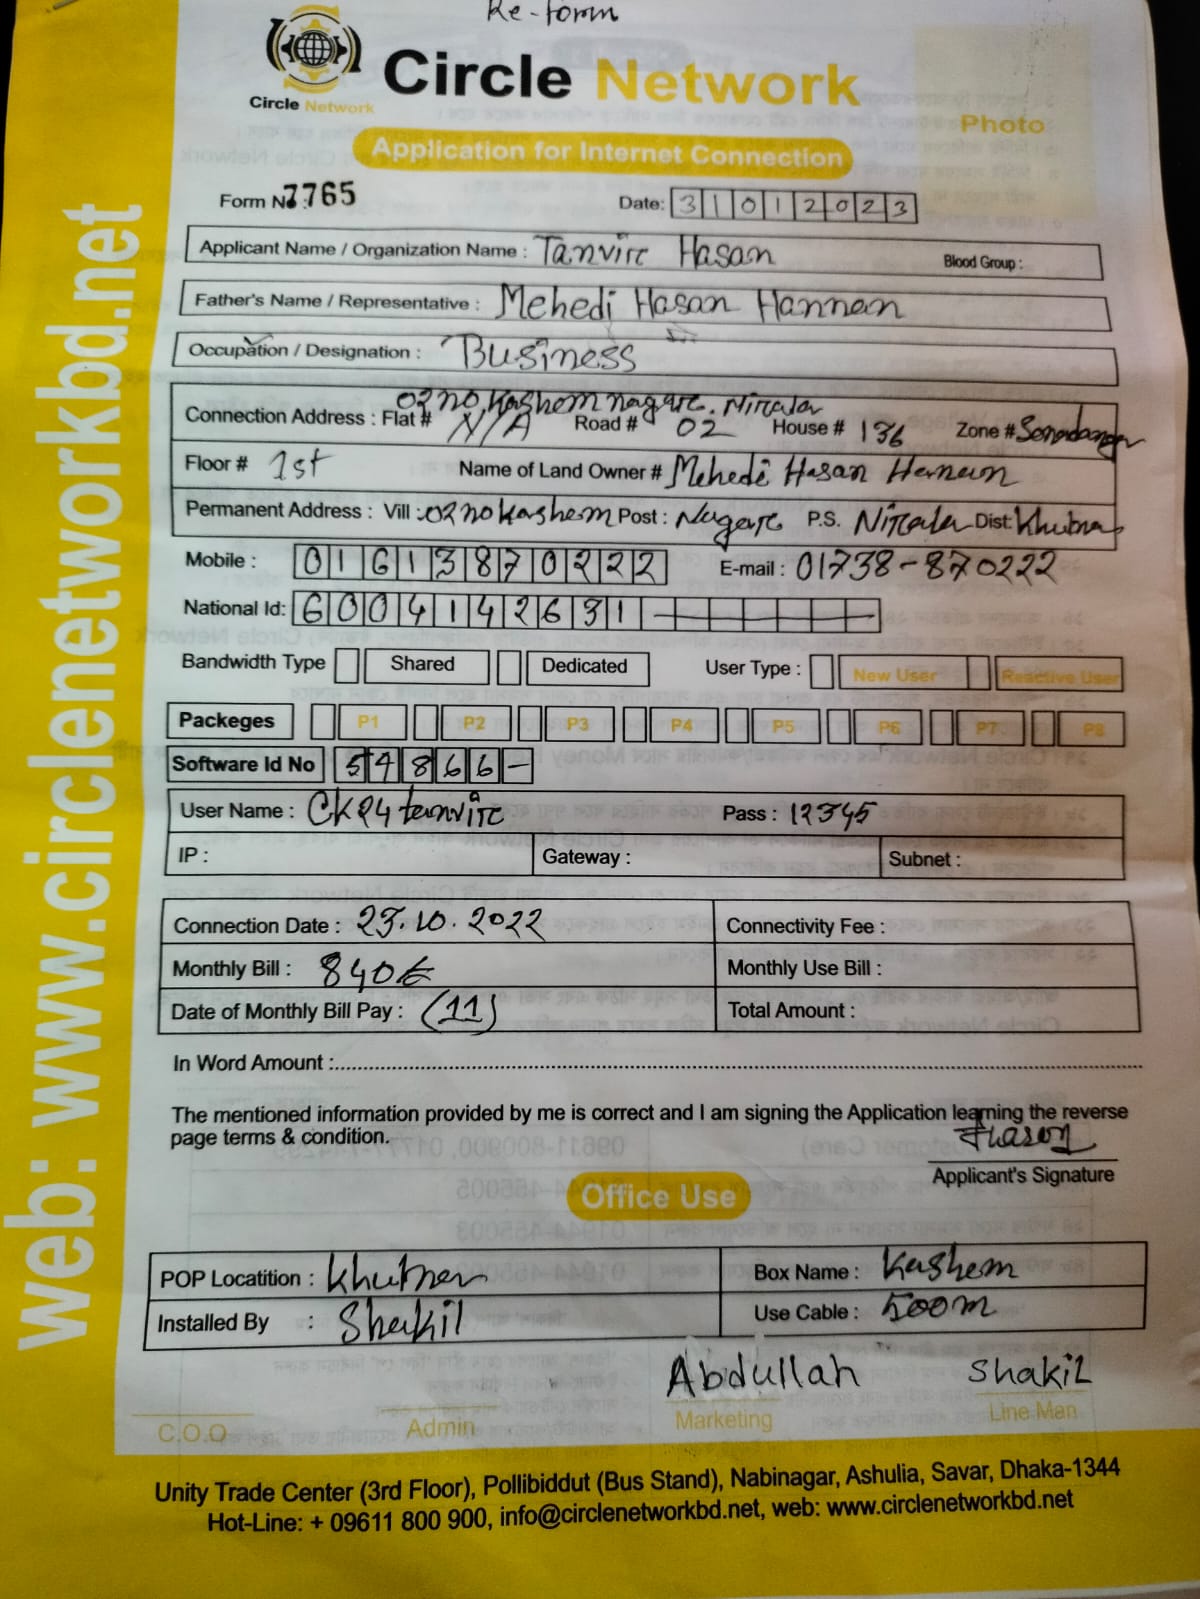 Re-form
Circle Network
Circle Network
Photo
Application for Internet Connection
Form No : 7765
Date: 31012023
Applicant Name / Organization Name : Tanvir Hasan
Blood Group :
Father's Name / Representative : Mehedi Hasan Hannan
Occupation / Designation : Business
02 no, Kashem nagar, Nirala
Connection Address : Flat # N/A Road # 02 House # 136 Zone # Sonadanga
Floor # 1st Name of Land Owner # Mehedi Hasan Hannan
Permanent Address : Vill : 02 no kashem Post : Nagar P.S. Nirala Dist: Khulna
Mobile : 01613870222 E-mail : 01738-870222
National Id: 6004142631
Bandwidth Type Shared Dedicated User Type : New User Reactive User
Packeges P1 P2 P3 P4 P5 P6 P7 P8
Software Id No 54866-
User Name : CK24tanvir Pass : 12345
IP : Gateway : Subnet :
Connection Date : 23.10.2022 Connectivity Fee :
Monthly Bill : 840৳ Monthly Use Bill :
Date of Monthly Bill Pay : (11) Total Amount :
In Word Amount :
The mentioned information provided by me is correct and I am signing the Application learning the reverse
page terms & condition.
Hasan
Applicant's Signature
Office Use
POP Locatition : Khulna Box Name : Kashem
Installed By : Shakil Use Cable : 500m
Abdullah Shakil
C.O.O Admin Marketing Line Man
Unity Trade Center (3rd Floor), Pollibiddut (Bus Stand), Nabinagar, Ashulia, Savar, Dhaka-1344
Hot-Line: + 09611 800 900, info@circlenetworkbd.net, web: www.circlenetworkbd.net
web: www.circlenetworkbd.net